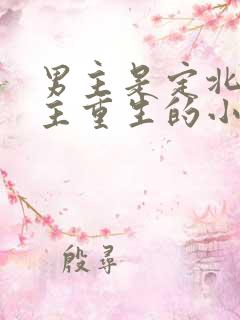 男主是定北
主重生的小
殷尋